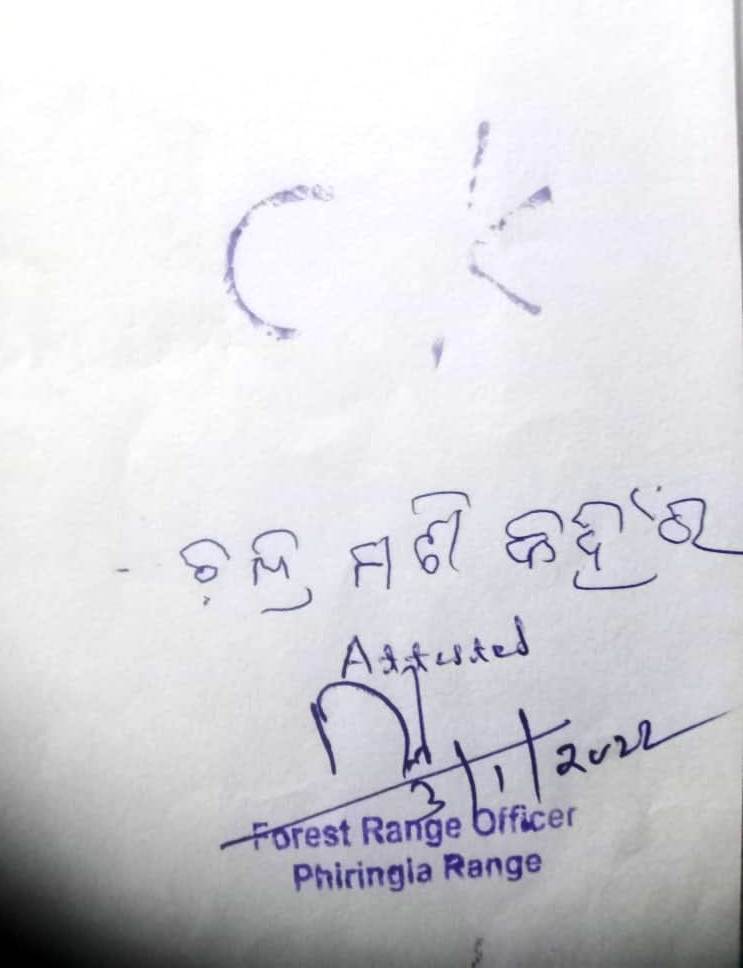 C K
- ଚନ୍ଦ୍ର ମଣି କହଁର
Attested
3/1/2022
Forest Range Officer
Phiringia Range